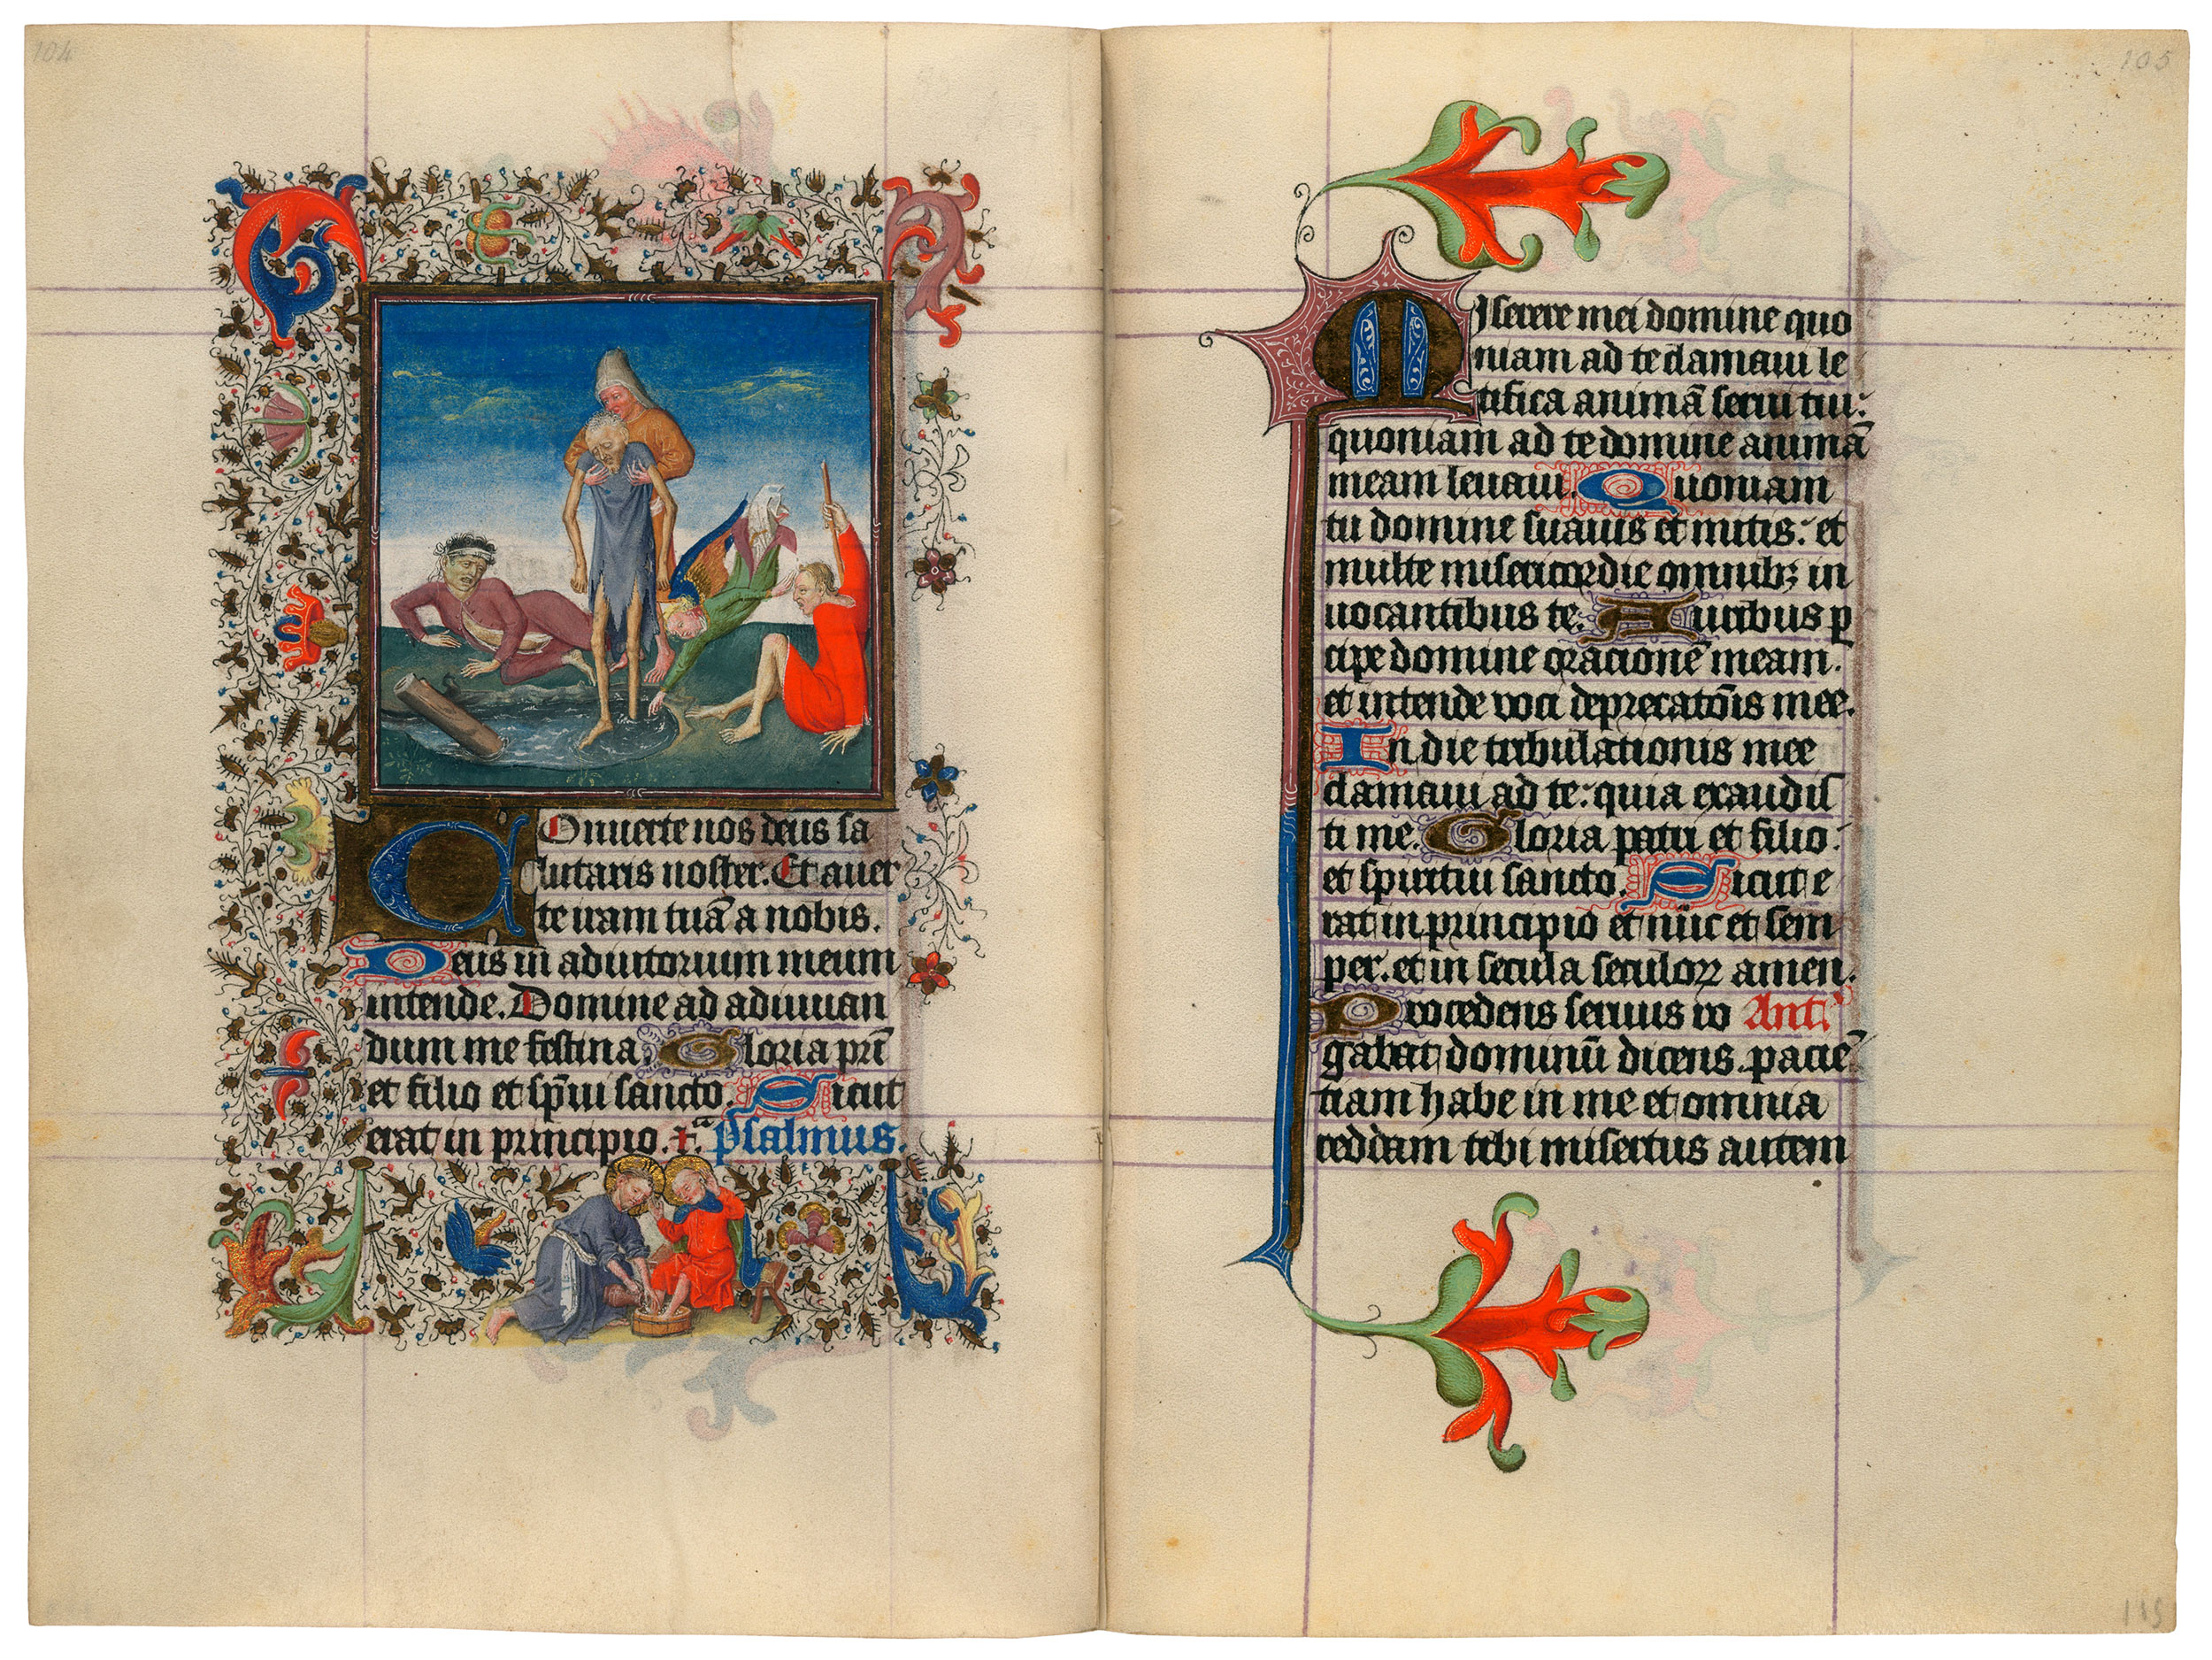 104
Conuerte nos deus sa
lutaris noster. Et auer
te iram tuā a nobis.
Deus in adiutorium meum
intende. Domine ad adiuuan
dum me festina. Gloria pr̄i
et filio et sp̄ui sancto. Sicut
erat in principio. &c̄. psalmus.
105
Miserere mei domine quo
niam ad te clamaui le
tifica animā serui tui:
quoniam ad te domine animā
meam leuaui. Quoniam
tu domine suauis et mitis: et
multe misericordie omnibꝫ in
uocantibus te. Auribus ꝑ
cipe domine oracionē meam.
et intende voci deprecatōis mee.
In die tribulationis mee
clamaui ad te: quia exaudis
ti me. Gloria patri et filio:
et spiritui sancto. Sicut e
rat in principio et nūc et sem
per. et in secula seculoꝝ amen.
Procedens seruus ro Anti
gabat dominū dicens. paciē
tiam habe in me et omnia
reddam tibi misertus autem